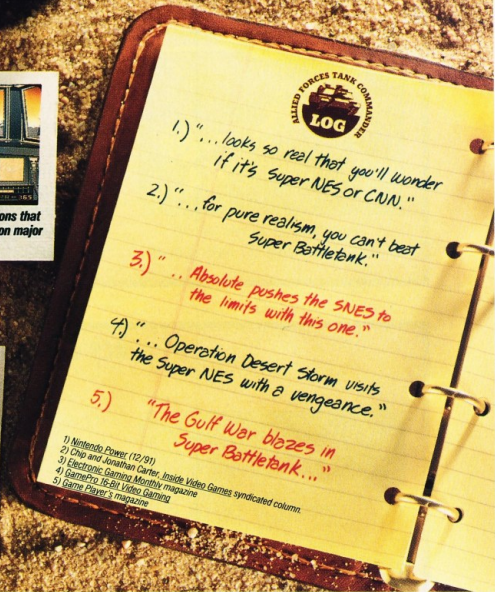 ALLIED FORCES TANK COMMANDER
LOG
1.) "...looks so real that you'll wonder
if it's Super NES or CNN."
2.) "...for pure realism, you can't beat
Super Battletank."
3.) ".. Absolute pushes the SNES to
the limits with this one."
4.) "... Operation Desert Storm visits
the Super NES with a vengeance."
5.) "The Gulf War blazes in
Super Battletank..."
1) Nintendo Power (12/91)
2) Chip and Jonathan Carter, Inside Video Games syndicated column.
3) Electronic Gaming Monthly magazine
4) GamePro 16-Bit Video Gaming
5) Game Player's magazine
ons that
on major